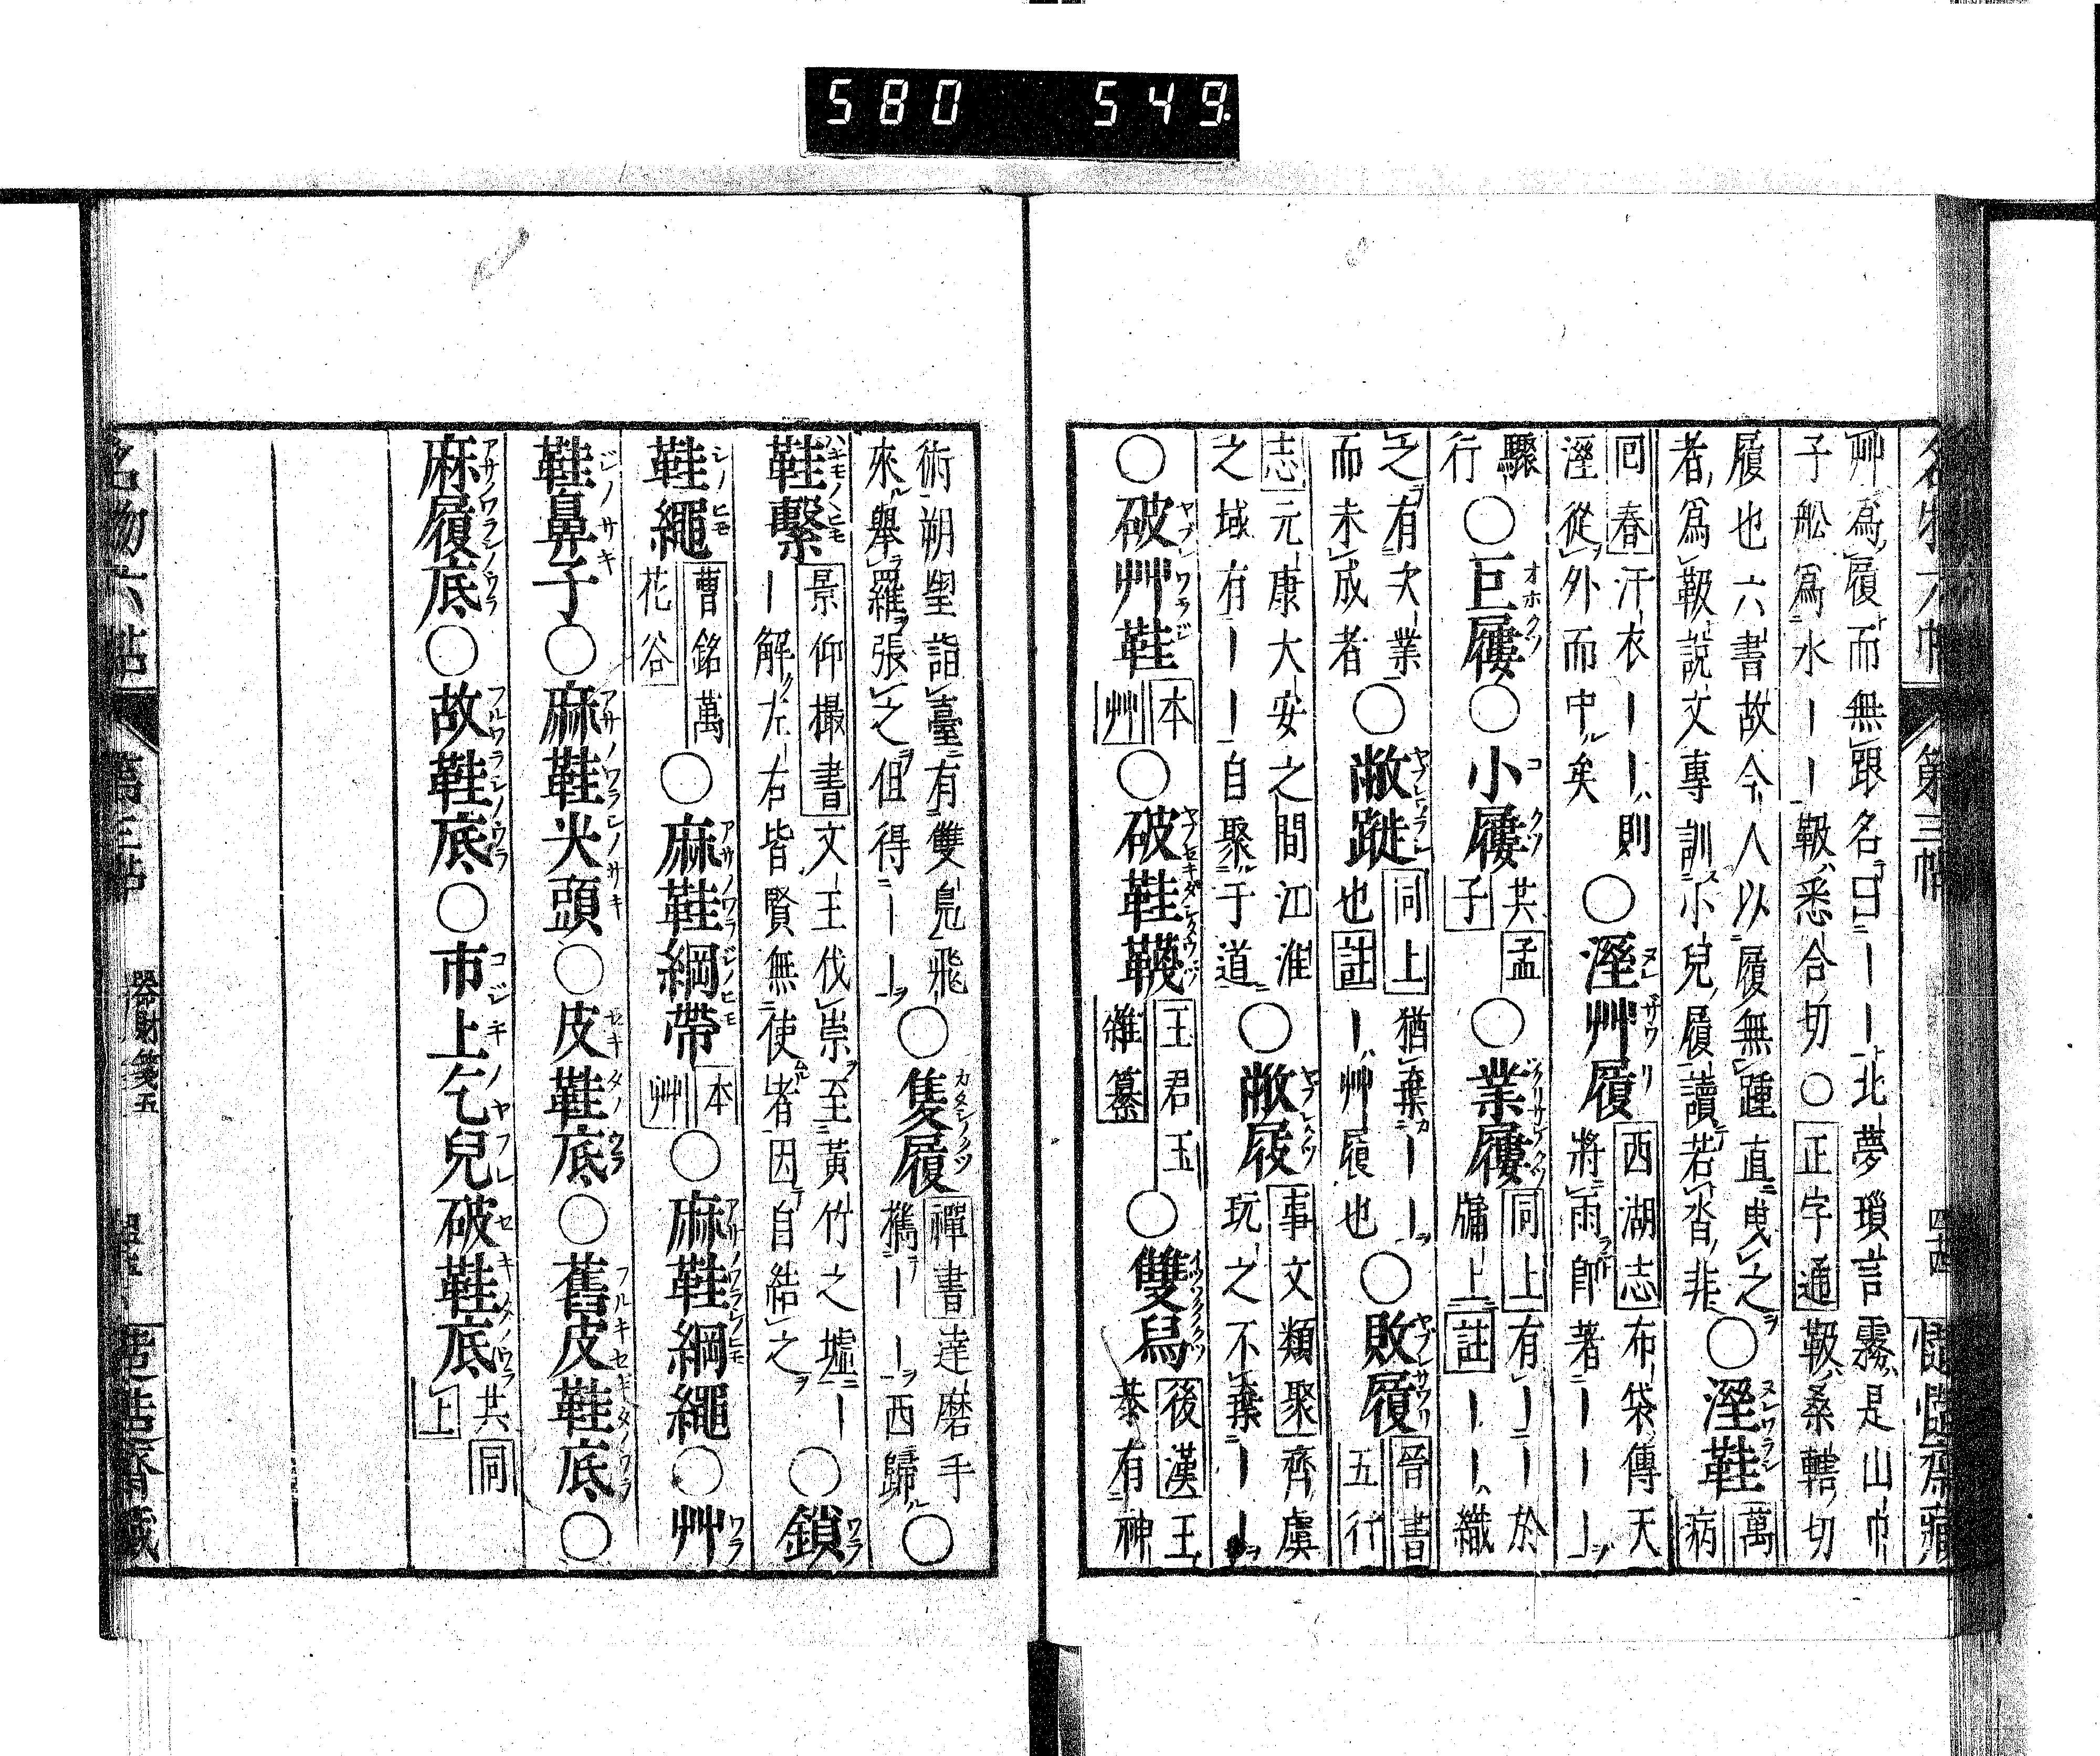 580 549
名物六帖 第三帖 四十四
艸爲履而無跟名曰ーーー北夢瑣言霧是山巾
子舩爲水ーー靸悉合切○正字通靸桑轄切
履也六書故今人以履無踵直曳之
者爲靸說文專訓小兒履讀若沓非
○溼鞋
萬病
回春汗衣ーー則
溼從外而中矣
○溼艸履
西湖志布袋傳天
將雨卽著ーーー
驟行
○巨屨○小屨
共孟子
○業屨
同上有ーー於
牖上註ーー織
之有次業
而未成者
○敝蹝
同上猶棄ーー
也註ー艸履也
○敗履
晉書五行
志元康大安之間江淮
之域有ーー自聚于道
○敝屐
事文類聚齊虞
玩之不棄ーー
○破艸鞋
本艸
○破鞋韈
王君玉
雜纂
○雙舃
後漢王
恭有神
術朔望詣臺有雙鳧飛
來舉羅張之但得ーー
○隻履
禪書達磨手
攜ーー西歸
○鎖
鞋繫
景仰撮書文王伐崇至黃竹之墟ー
ー解左右皆賢無使者因自結之
○艸
鞋繩
曹銘萬
花谷
○麻鞋綱帶
本艸
○麻鞋綱繩
鞋鼻子○麻鞋尖頭○皮鞋底○舊皮鞋底○
麻履底○故鞋底○市上乞兒破鞋底
共同上
名物六帖 第三帖 器財箋五